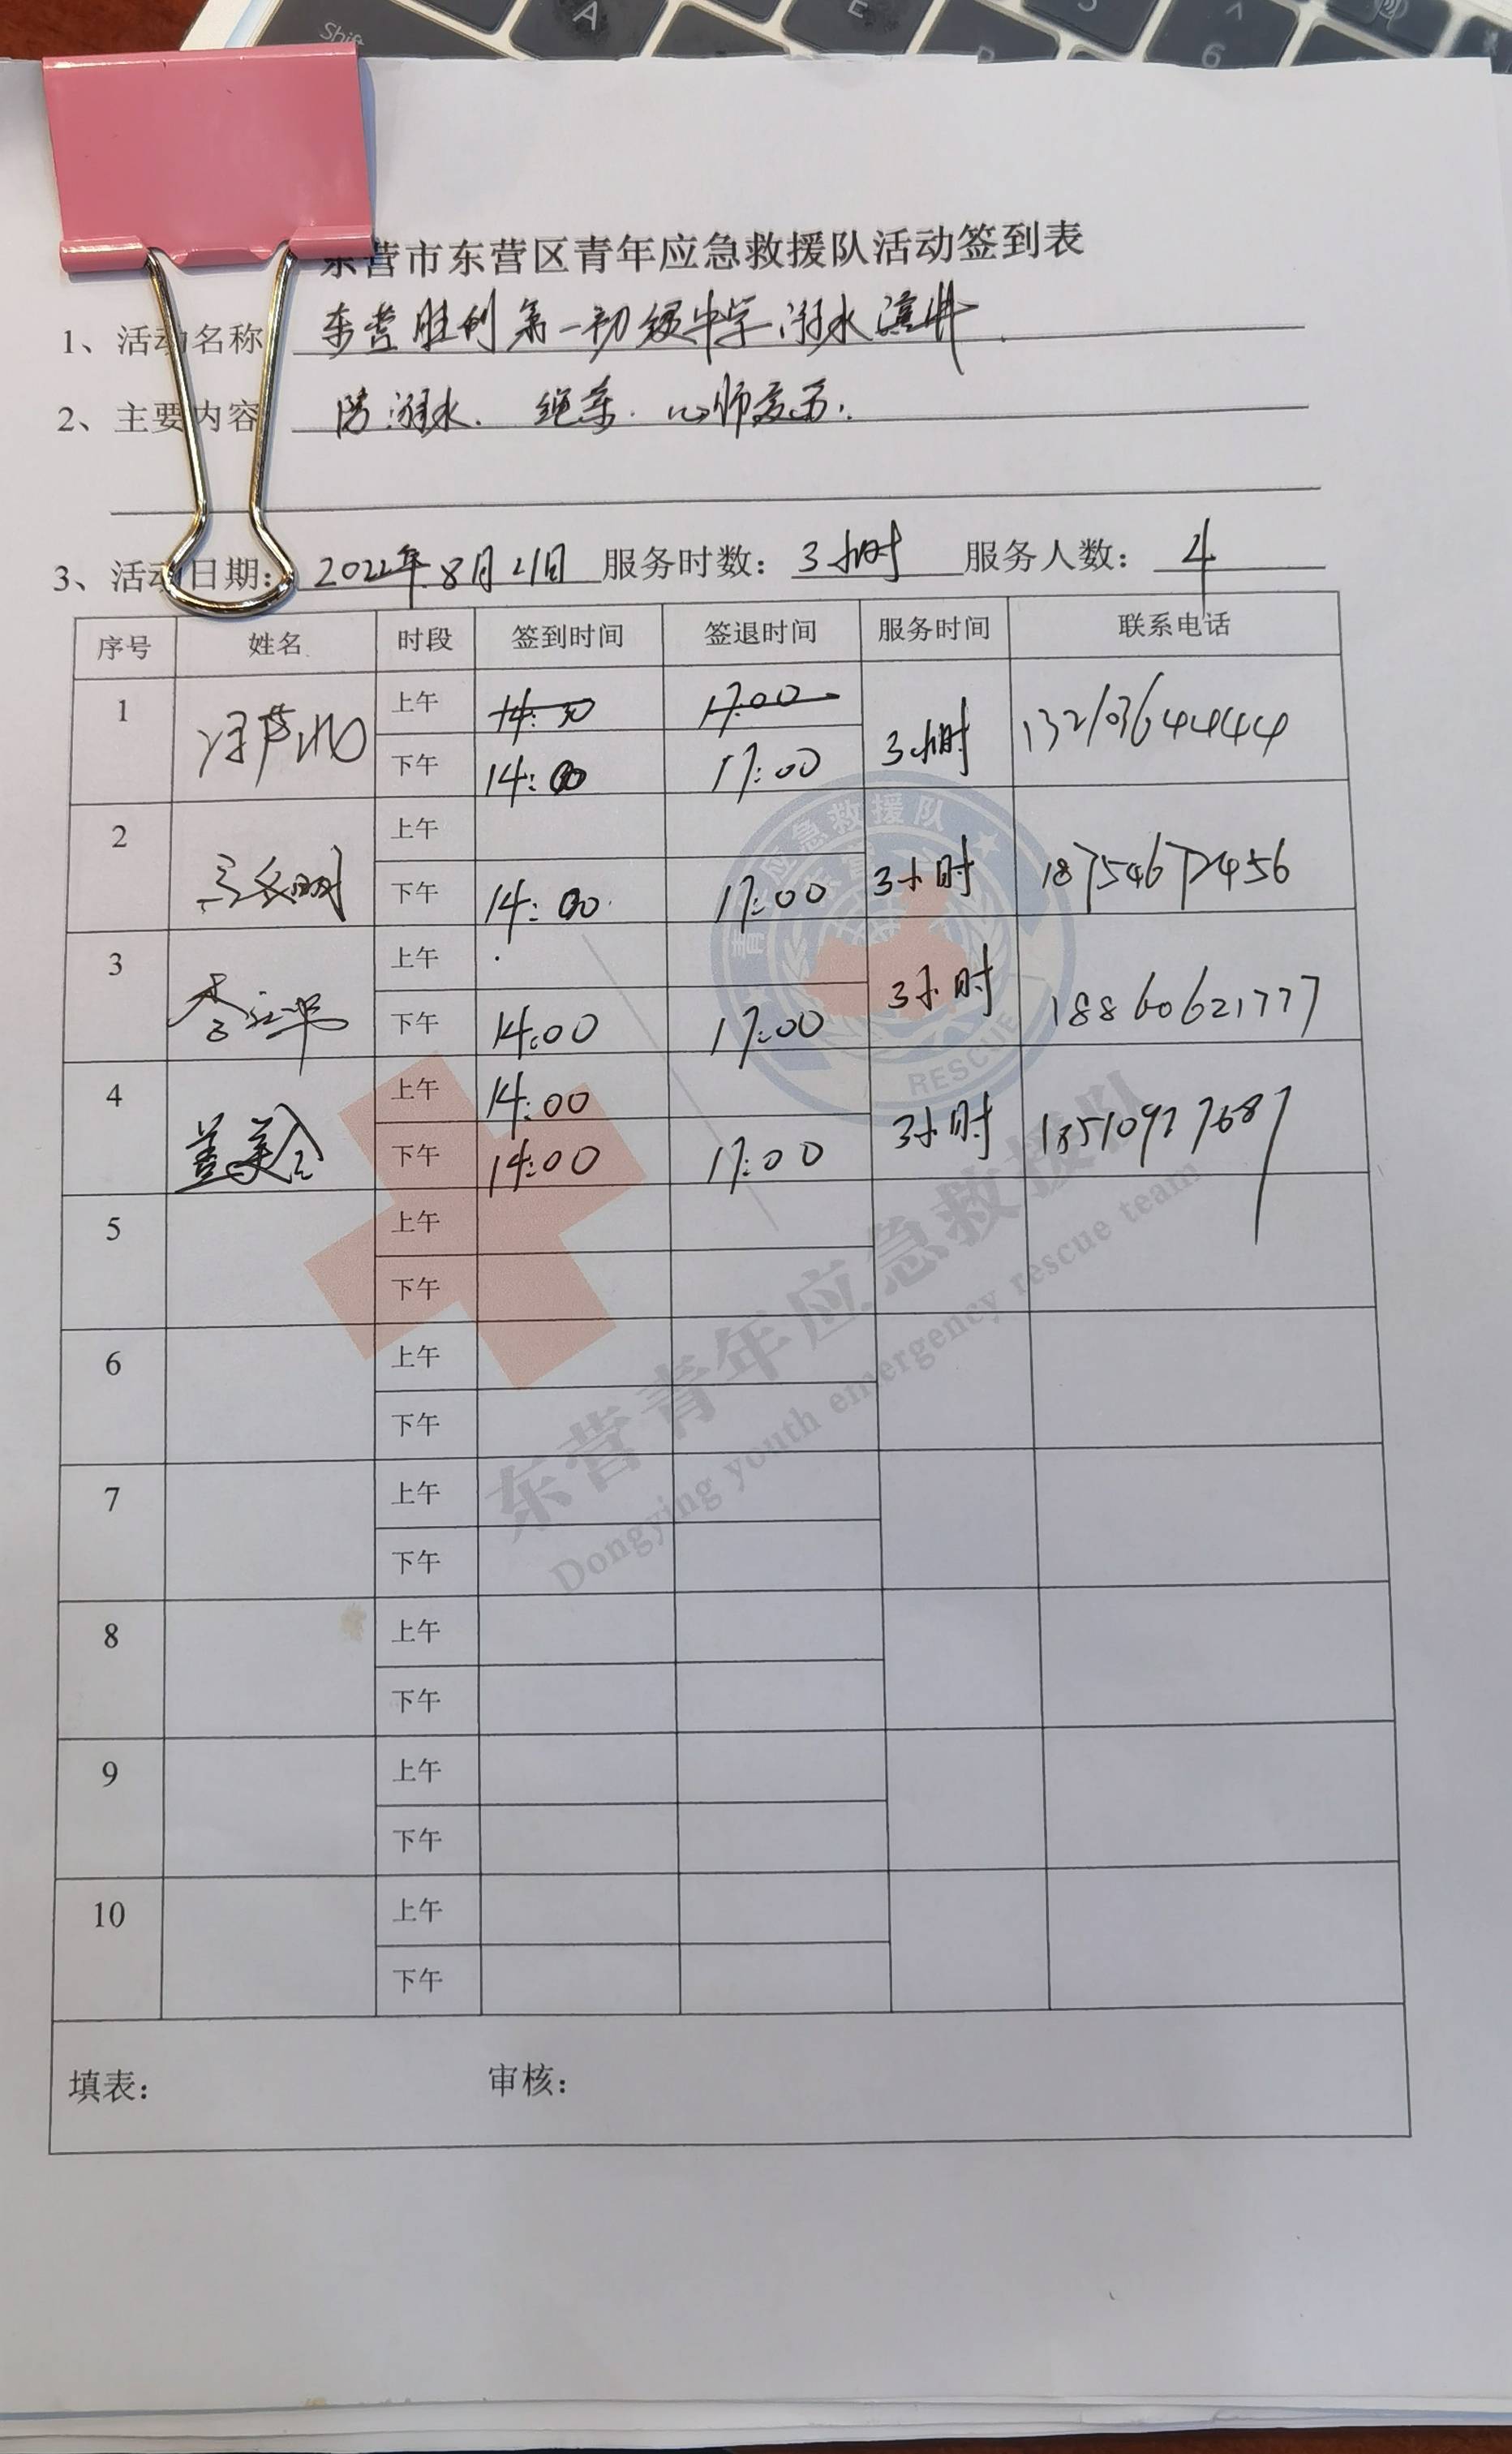 东营市东营区青年应急救援队活动签到表
1、活动名称 东营胜利第一初级中学溺水演
2、主要内容 防溺水. 绳索.
3、活动日期: 2022年8月21日 服务时数: 3小时 服务人数: 4
序号 姓名 时段 签到时间 签退时间 服务时间 联系电话
1 上午 14:30 17:00
下午 14:00 17:00 3小时 13210364444
2 上午
下午 14:00 17:00 3小时 18754672456
3 上午
下午 14:00 17:00 3小时 18860621777
4 上午 14:00
盖美 下午 14:00 17:00 3小时
5 上午
下午
6 上午
下午
7 上午
下午
8 上午
下午
9 上午
下午
10 上午
下午
填表: 审核:
青年应急救援队
东营
RESCUE
东营青年应急救援队
Dongying youth emergency rescue team
Shift A E 6